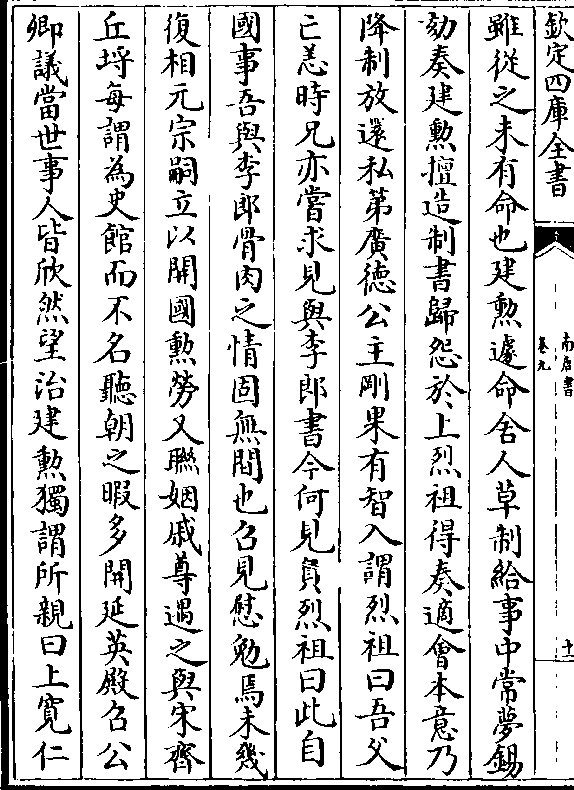 欽定四庫全書
南唐書
卷九
十
雖從之未有命也建勲遽命舍人草制給事中常夢錫
劾奏建勲擅造制書歸怨於上烈祖得奏適會本意乃
降制放還私第廣德公主剛果有智入謂烈祖曰吾父
亡恙時兄亦當求見與李郎書今何見負烈祖曰此自
國事吾與李郎骨肉之情固無間也召見慰勉焉未幾
復相元宗嗣立以開國勲勞又聯姻戚尊遇之與宋齊
丘埒每謂為史館而不名聽朝之暇多開延英殿召公
卿議當世事人皆欣然望治建勲獨謂所親曰上寛仁